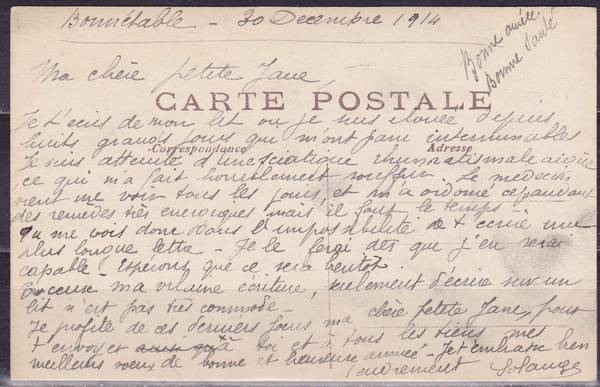 Bonnétable - 30 Décembre 1914
Bonne année
Bonne Santé
Ma chère petite Jane,
CARTE POSTALE
Correspondance
Adresse
Je t'écris de mon lit où je suis clouée depuis
huit grands jours qui m'ont paru interminables
Je suis atteinte d'une sciatique rhumatismale aiguë
ce qui m'a fait horriblement souffrir. Le médecin
vient me voir tous les jours, et m'a ordonné cependant
des remèdes très énergiques mais il faut le temps -
Tu me vois donc dans l'impossibilité de t'écrire une
plus longue lettre - Je le ferai dès que j'en serai
capable - Espérons que ce sera bientôt
Excuse ma vilaine écriture, seulement d'écrire sur un
lit n'est pas très commode.
Je profite de ces derniers jours ma chère petite Jane, pour
t'envoyer ainsi qu'à toi et à tous les tiens mes
meilleurs voeux de bonne et heureuse année - Je t'embrasse bien
tendrement Solange